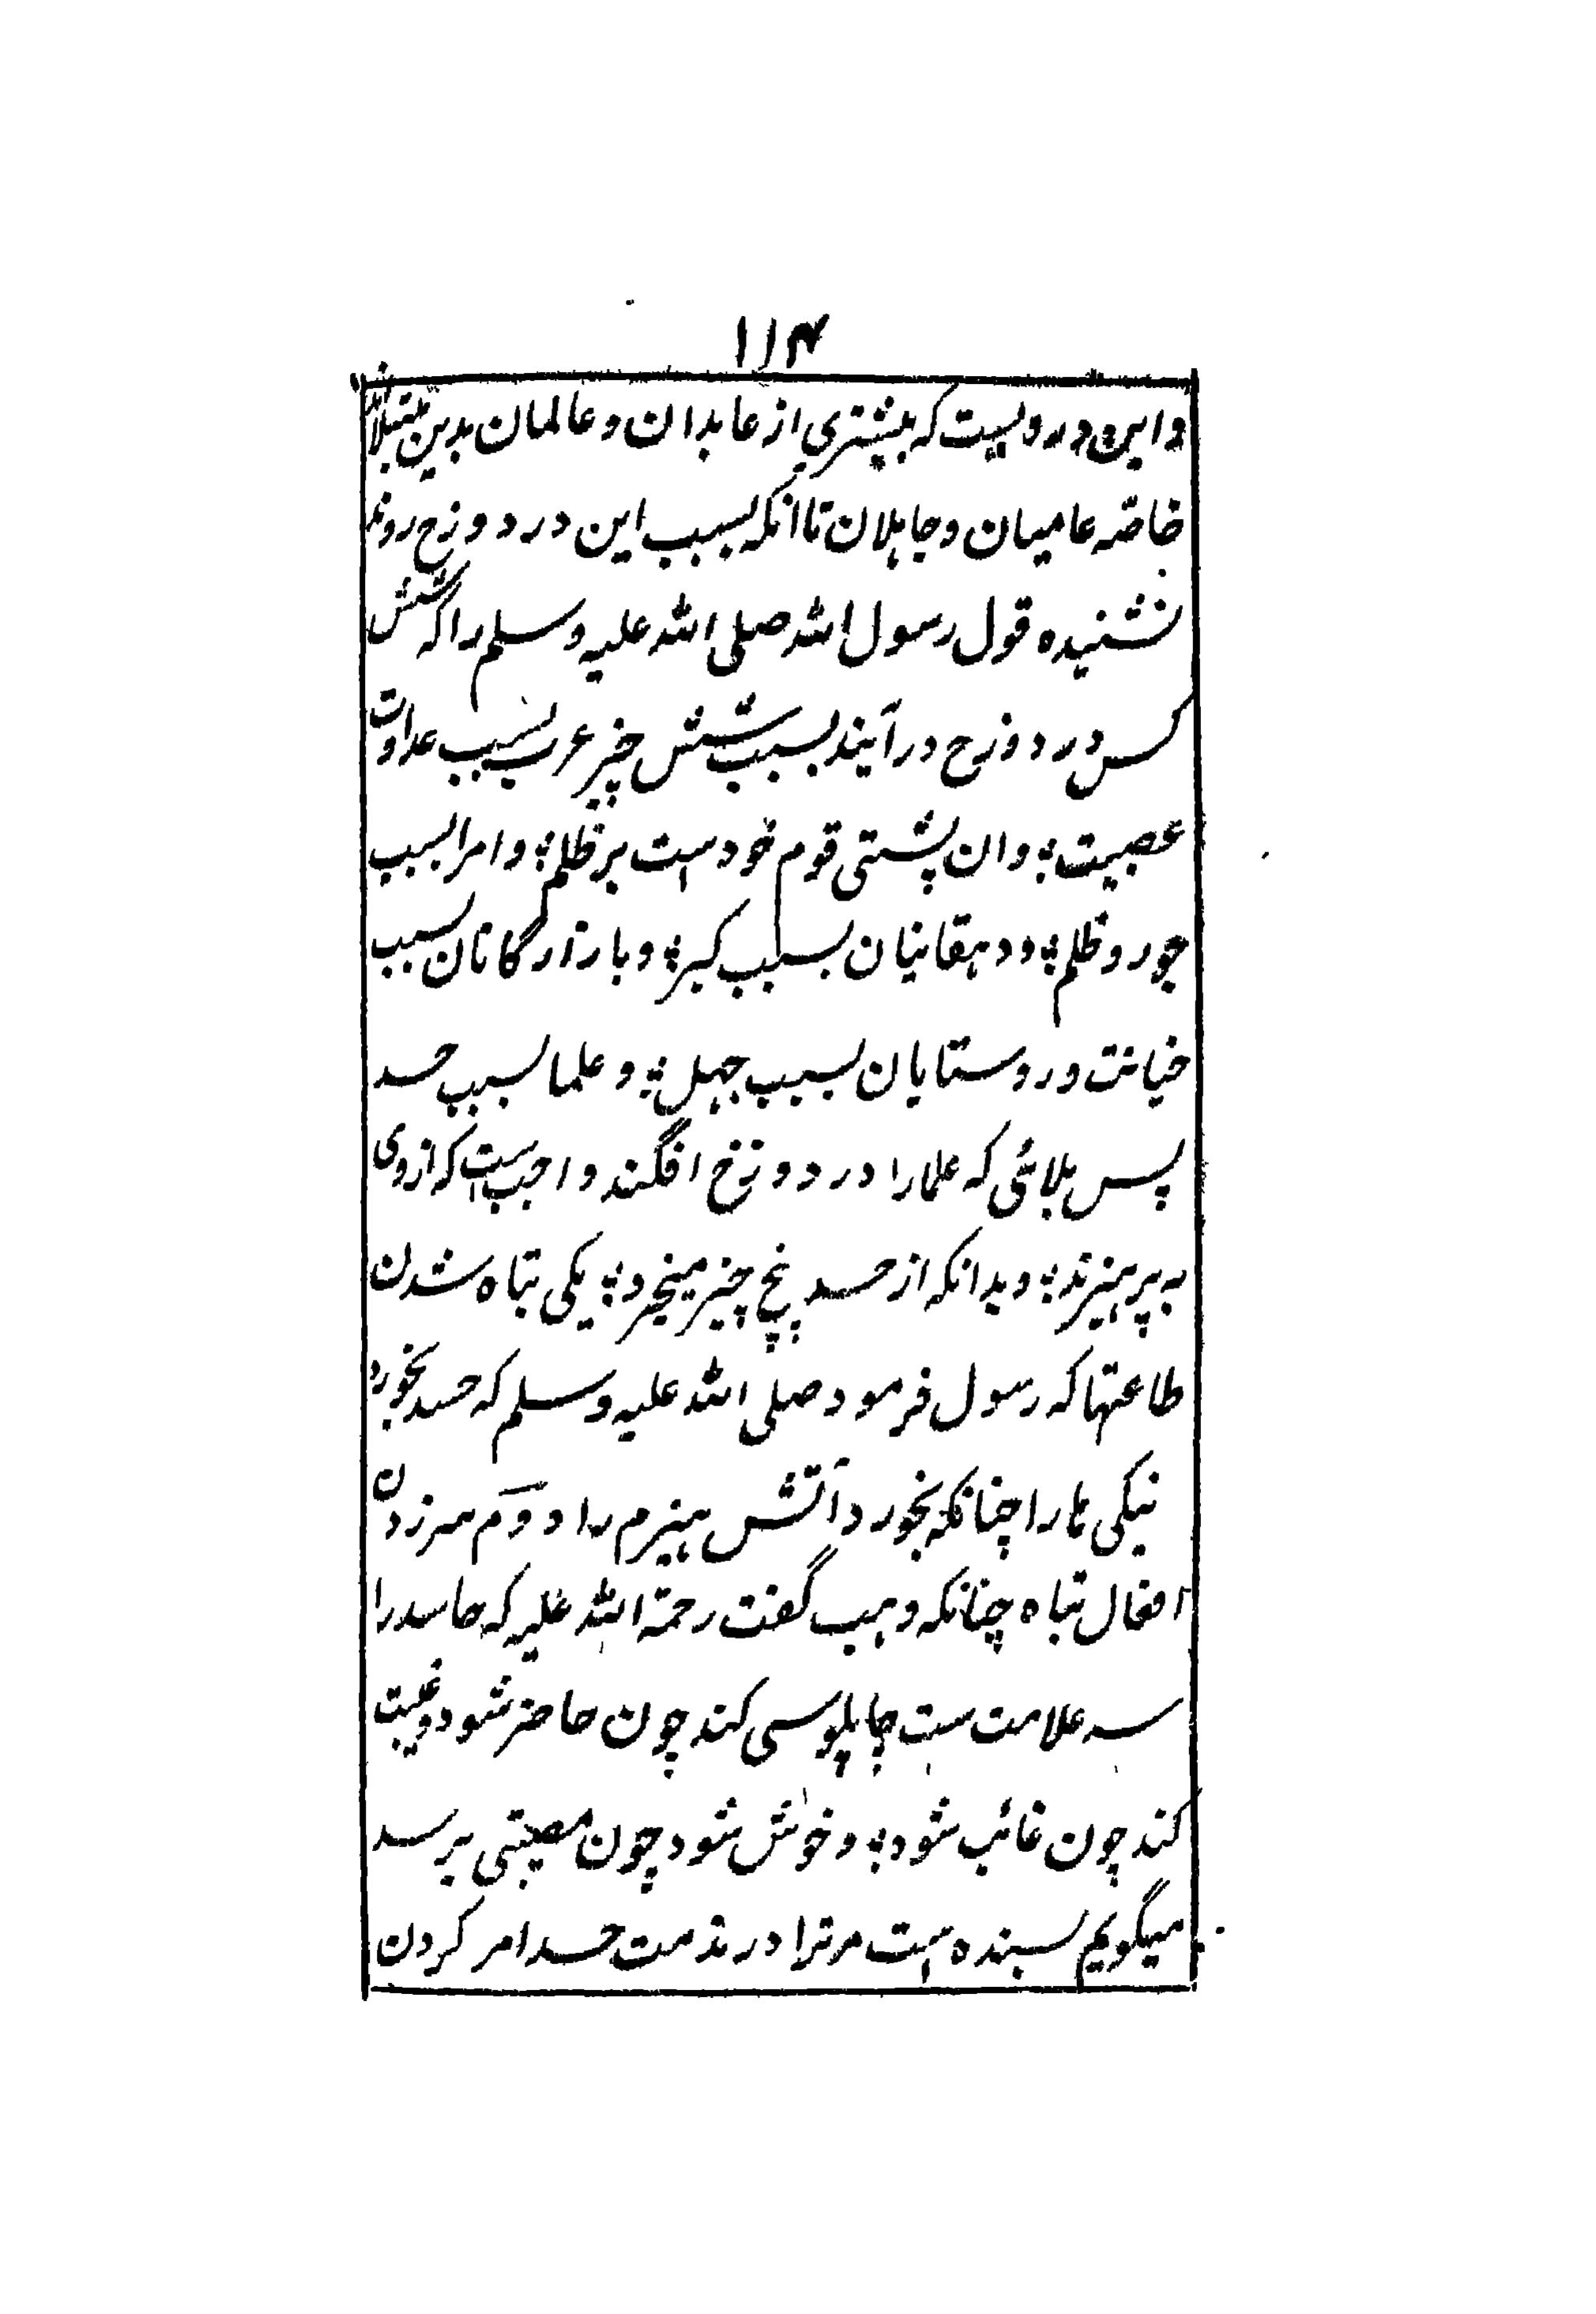 ۱۱۴
و این دردیست که بیشتری از عابدان و عالمان بدین مبتلااند
خاصّه عامیان و جاہلان تا انکه بسبب این در دوزخ روند
نشنیده قول رسول الله صلی الله علیه وسلم را که شش
کس در دوزخ در آیند بسبب شش چیز عرب بسبب عداوت
عصبیت؛ و ان پشتی قوم خود است بر ظلم؛ و امرا بسبب
جور و ظلم؛ و دہقانیان بسبب کبر؛ و بازارگانان بسبب
خیانت و روستایان بسبب جہل؛ و علما بسبب حسد
پس بلائی که علما را در دوزخ افگند واجب است که از وی
به پرہیزند؛ و بدانکه از حسد پنج چیز میخیزد؛ یکی تباه شدن
طاعتها که رسول فرمود صلی الله علیه وسلم که حسد بخورد
نیکی ہا را چنانکه بخورد آتش ہیزم را دوم سر زدن
افعال تباه چنانکه وہب گفت رحمة الله علیه که حاسد را
سه علامت ست چاپلوسی کند چون حاضر شود و غیبت
کند چون غائب شود؛ و خوش شود چون مصیبتی برسد
میگویم بسنده است مر ترا در مذمت حسد امر کردن